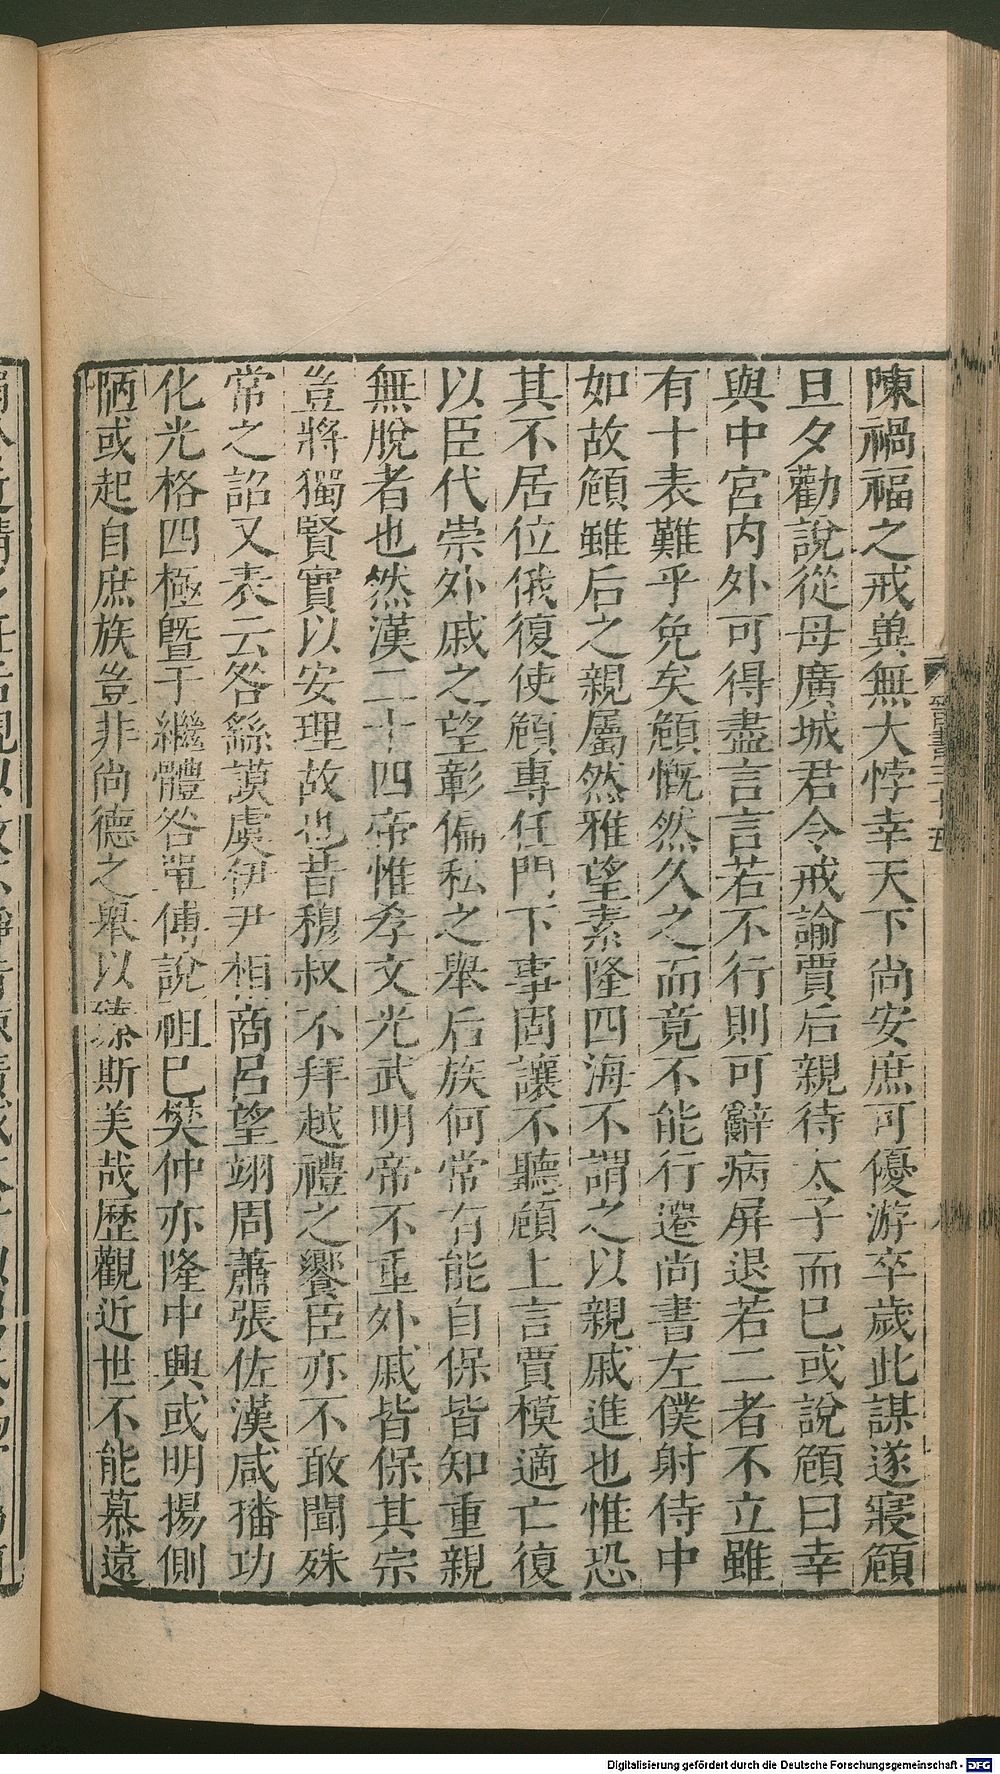 陳禍福之戒冀無大悖幸天下尚安庶可優游卒歲此謀遂寢頠
旦夕勸說從母廣城君令戒諭賈后親待太子而已或說頠曰幸
與中宮內外可得盡言言若不行則可辭病屏退若二者不立雖
有十表難乎免矣頠慨然久之而竟不能行遷尚書左僕射侍中
如故頠雖后之親屬然雅望素隆四海不謂之以親戚進也惟恐
其不居位俄復使頠專任門下事固讓不聽頠上言賈模適亡復
以臣代崇外戚之望彰偏私之舉后族何常有能自保皆知重親
無脫者也然漢二十四帝惟孝文光武明帝不重外戚皆保其宗
豈將獨賢實以安理故也昔穆叔不拜越禮之饗臣亦不敢聞殊
常之詔又表云咎繇謨虞伊尹相商呂望翊周蕭張佐漢咸播功
化光格四極暨于繼體咎單傅說祖已樊仲亦隆中興或明揚側
陋或起自庶族豈非尚德之舉以臻斯美哉歷觀近世不能慕遠
晉書三十五
Digitalisierung gefördert durch die Deutsche Forschungsgemeinschaft - DFG